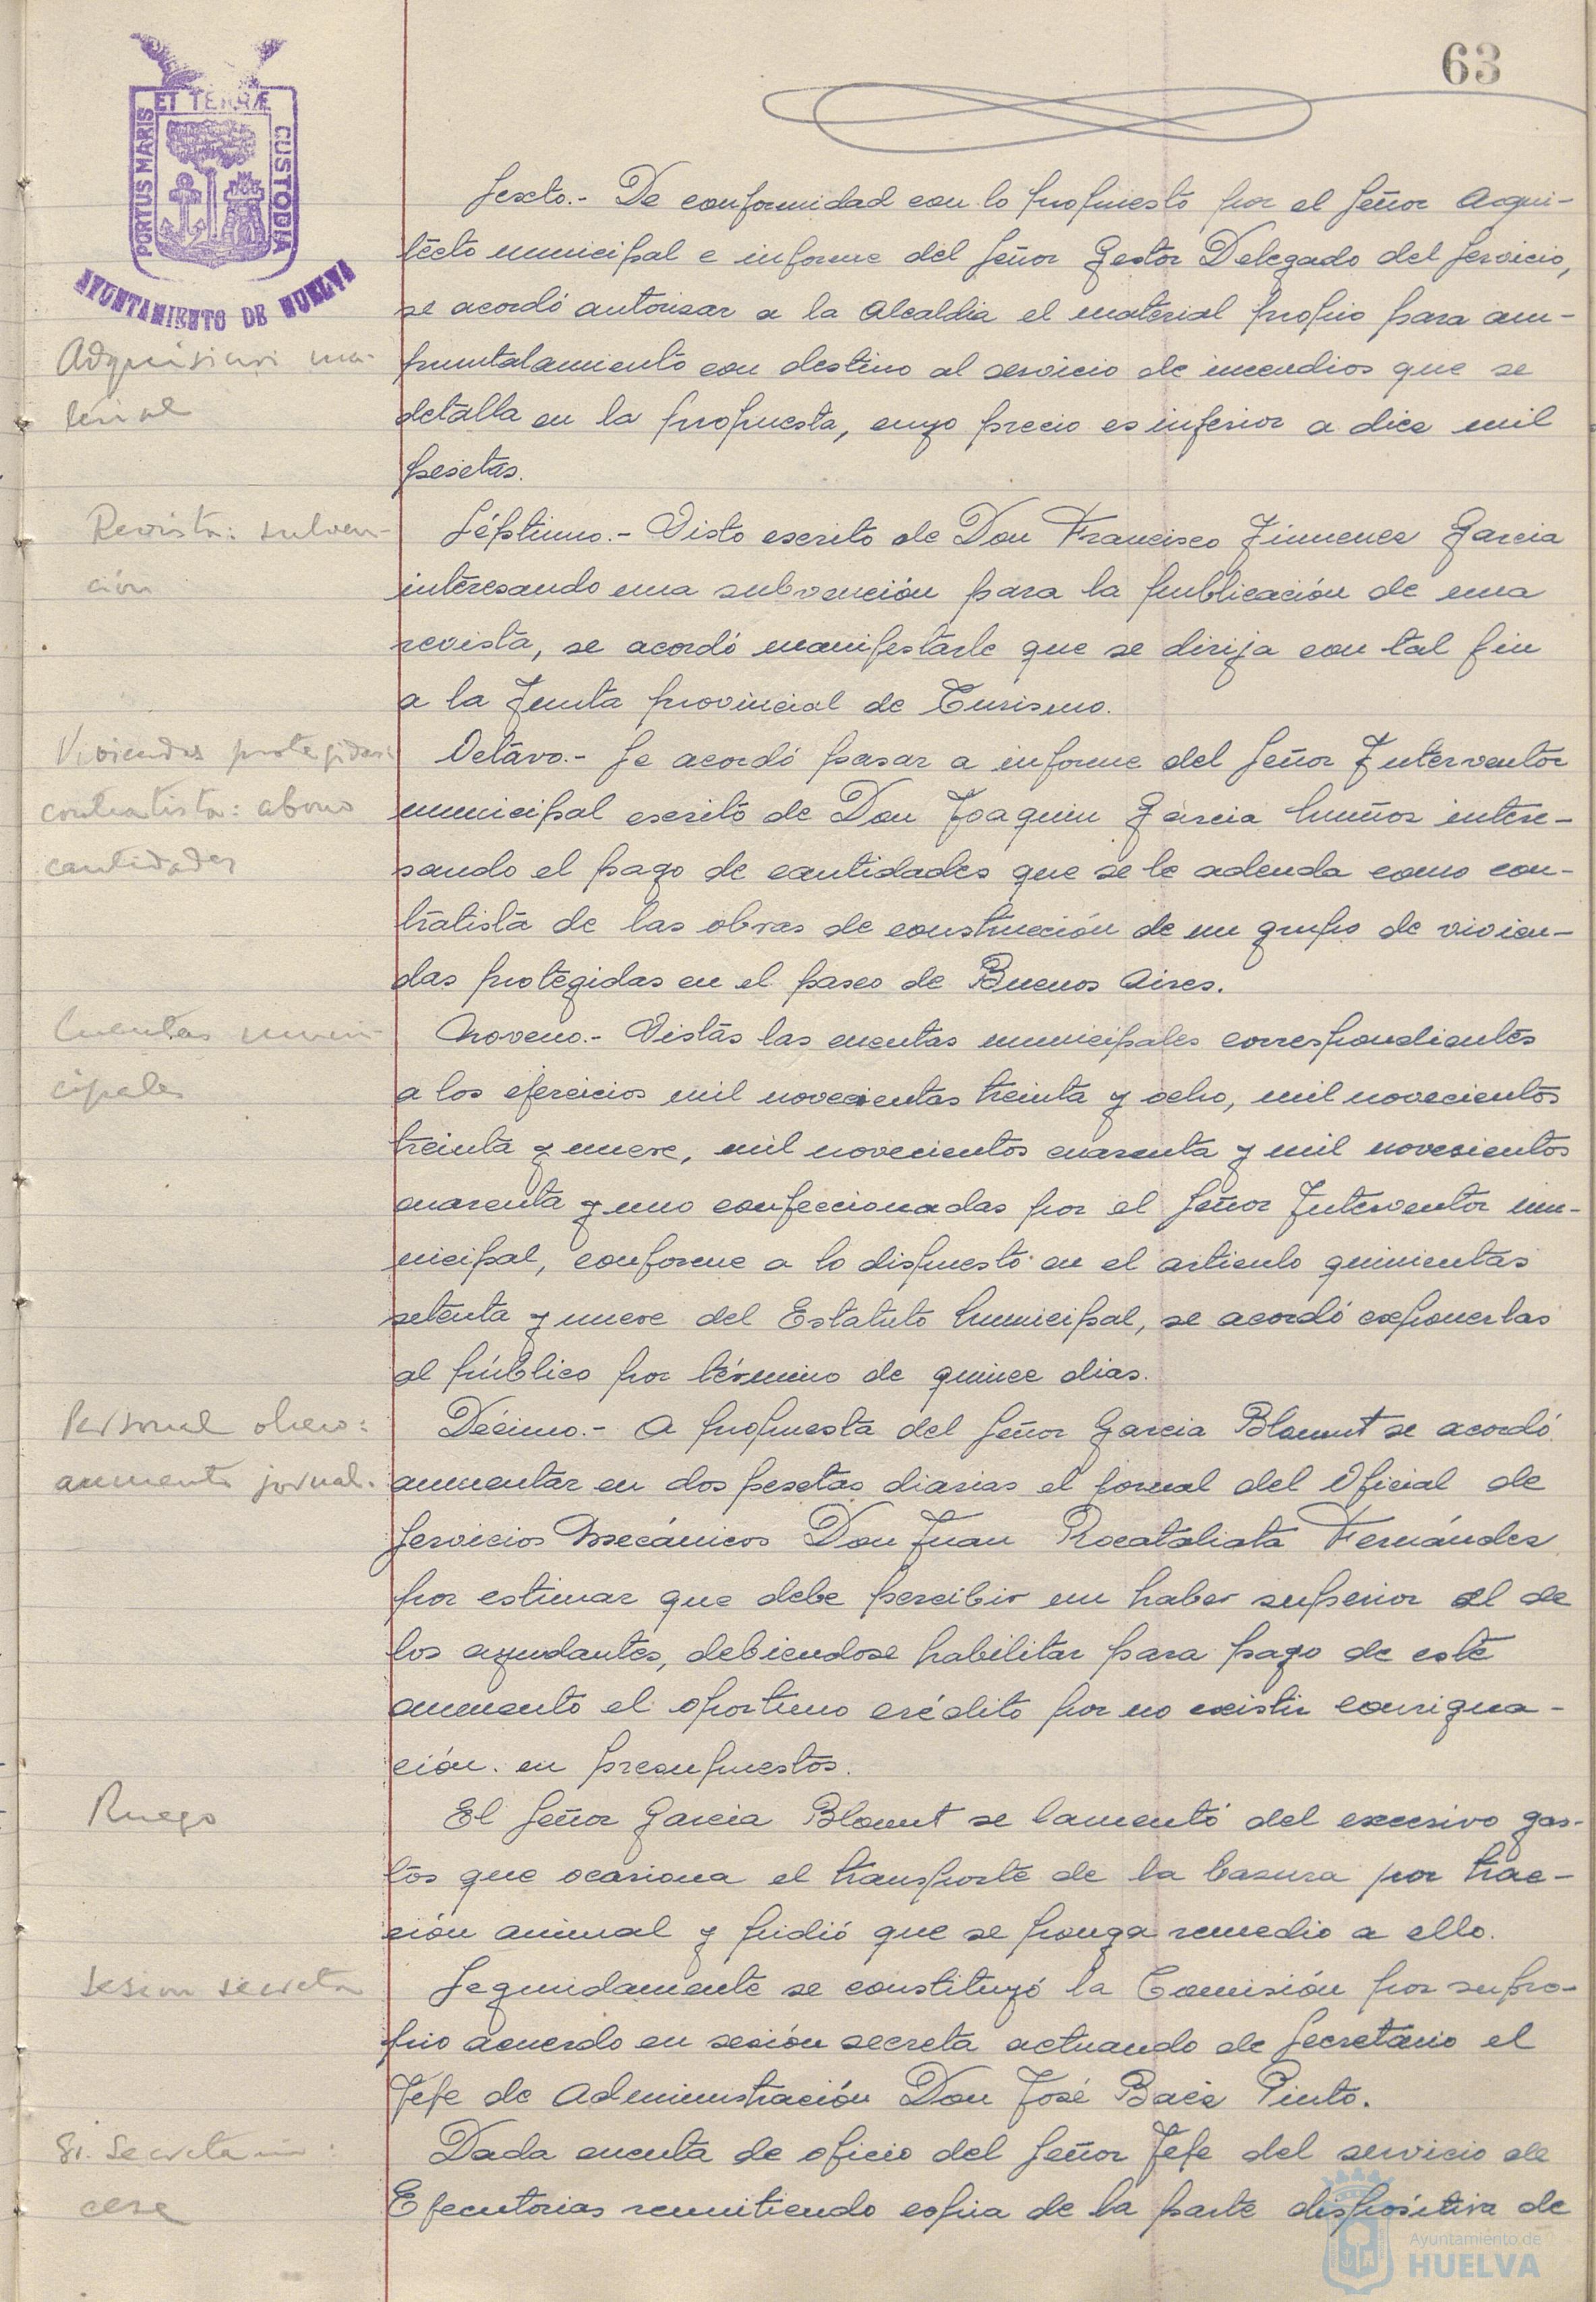 63
PORTUS MARIS
ET TERRÆ
CUSTODIA
AYUNTAMIENTO DE HUELVA
Sexto.- De conformidad con lo propuesto por el Señor Arqui-
tecto municipal e informe del Señor Gestor Delegado del Servicio,
se acordó autorisar a la Alcaldia el material propio para am-
Adquisicion ma-
puntalamiento con destino al servicio de incendios que se
terial
detalla en la propuesta, cuyo precio es inferior a diez mil
pesetas.
Revista: subven-
Séptimo.- Visto escrito de Don Francisco Jimenez Garcia
ción
interesando una subvención para la publicación de una
revista, se acordó manifestarle que se dirija con tal fin
a la Junta provincial de Turismo.
Viviendas protegidas:
Octavo.- Se acordó pasar a informe del Señor Interventor
contratista: abono
municipal escrito de Don Joaquin Garcia Muñoz intere-
cantidades
sando el pago de cantidades que se le adeuda como con-
tratista de las obras de construcción de un grupo de vivien-
das protegidas en el paseo de Buenos Aires.
Cuentas muni-
Noveno.- Vistas las cuentas municipales correspondientes
cipales
a los ejercicios mil novecientas treinta y ocho, mil novecientos
treinta y nueve, mil novecientos cuarenta y mil novecientos
cuarenta y uno confeccionadas por el Señor Interventor mu-
nicipal, conforme a lo dispuesto en el articulo quinientas
setenta y nueve del Estatuto Municipal, se acordó exponerlas
al público por término de quince dias.
Personal obrero:
Décimo.- A propuesta del Señor Garcia Blount se acordó
aumento jornal.
aumentar en dos pesetas diarias el jornal del Oficial de
Servicios Mecánicos Don Juan Rocataliata Fernández
por estimar que debe percibir un haber superior al de
los ayudantes, debiendose habilitar para pago de este
aumento el oportuno crédito por no existir consigna-
ción. en presupuestos.
Ruego
El Señor Garcia Blount se lamentó del excesivo gas-
tos que ocasiona el transporte de la basura por trac-
ción animal y pidió que se ponga remedio a ello.
Sesion secreta
Seguidamente se constituyó la Comisión por su pro-
pio acuerdo en sesión secreta actuando de Secretario el
Jefe de Administración Don José Baez Pinto.
Sr. Secretario:
Dada cuenta de oficio del Señor Jefe del servicio de
cese
Ejecutorias remitiendo copia de la parte dispositiva de
Ayuntamiento de
HUELVA